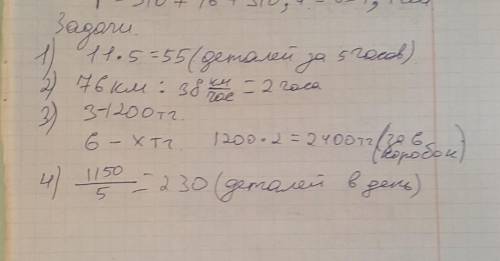 Задачи.
1) 11·5=55 (деталей за 5 часов)
2) 76 км : 38 км/час = 2 часа
3) 3-1200тг
6 - х тг. 1200·2=2400тг (за 6 коробок)
4) 1150/5 = 230 (деталей в день)